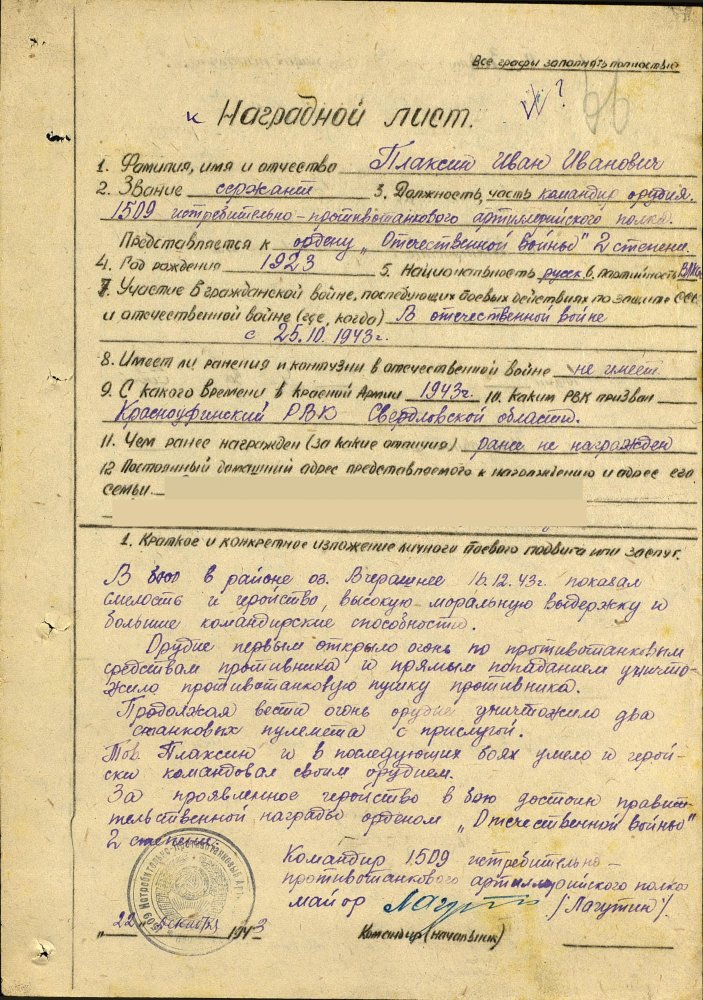 Все графы заполнять полностью
к Наградной лист.
1. Фамилия, имя и отчество Плаксин Иван Иванович
2. Звание сержант 3. Должность, часть командир орудия.
1509 истребительно-противотанкового артиллерийского полка.
Представляется к ордену „Отечественной войны" 2 степени.
4. Год рождения 1923 5. Национальность русск 6. партийность
7. Участие в гражданской войне, последующих боевых действиях по защите СССР
и отечественной войне (где, когда) В отечественной войне
с 25.10.1943г.
8. Имеет ли ранения и контузии в отечественной войне не имеет
9. С какого времени в красной Армии 1943г. 10. Каким РВК призван
Красноуфимский РВК Свердловской области.
11. Чем ранее награжден (за какие отличия) ранее не награжден
12 Постоянный домашний адрес представляемого к награждению и адрес его
семьи.
1. Краткое и конкретное изложение личного боевого подвига или заслуг.
В бою в районе оз. Вчерашнее 16.12.43г. показал
смелость и геройство, высокую моральную выдержку и
большие командирские способности.
Орудие первым открыло огонь по противотанковым
средствам противника и прямым попаданием уничто-
жило противотанковую пушку противника.
Продолжая вести огонь орудие уничтожило два
станковых пулемета с прислугой.
Тов. Плаксин и в последующих боях умело и герой-
ски командовал своим орудием.
За проявленное геройство в бою достоин правит-
тельственной награды орденом „Отечественной войны"
2 степени.
Командир 1509 истребительно-
противотанкового артиллерийского полка
майор Лагутин /Лагутин/.
„22" декабря 1943
Командир (начальник)